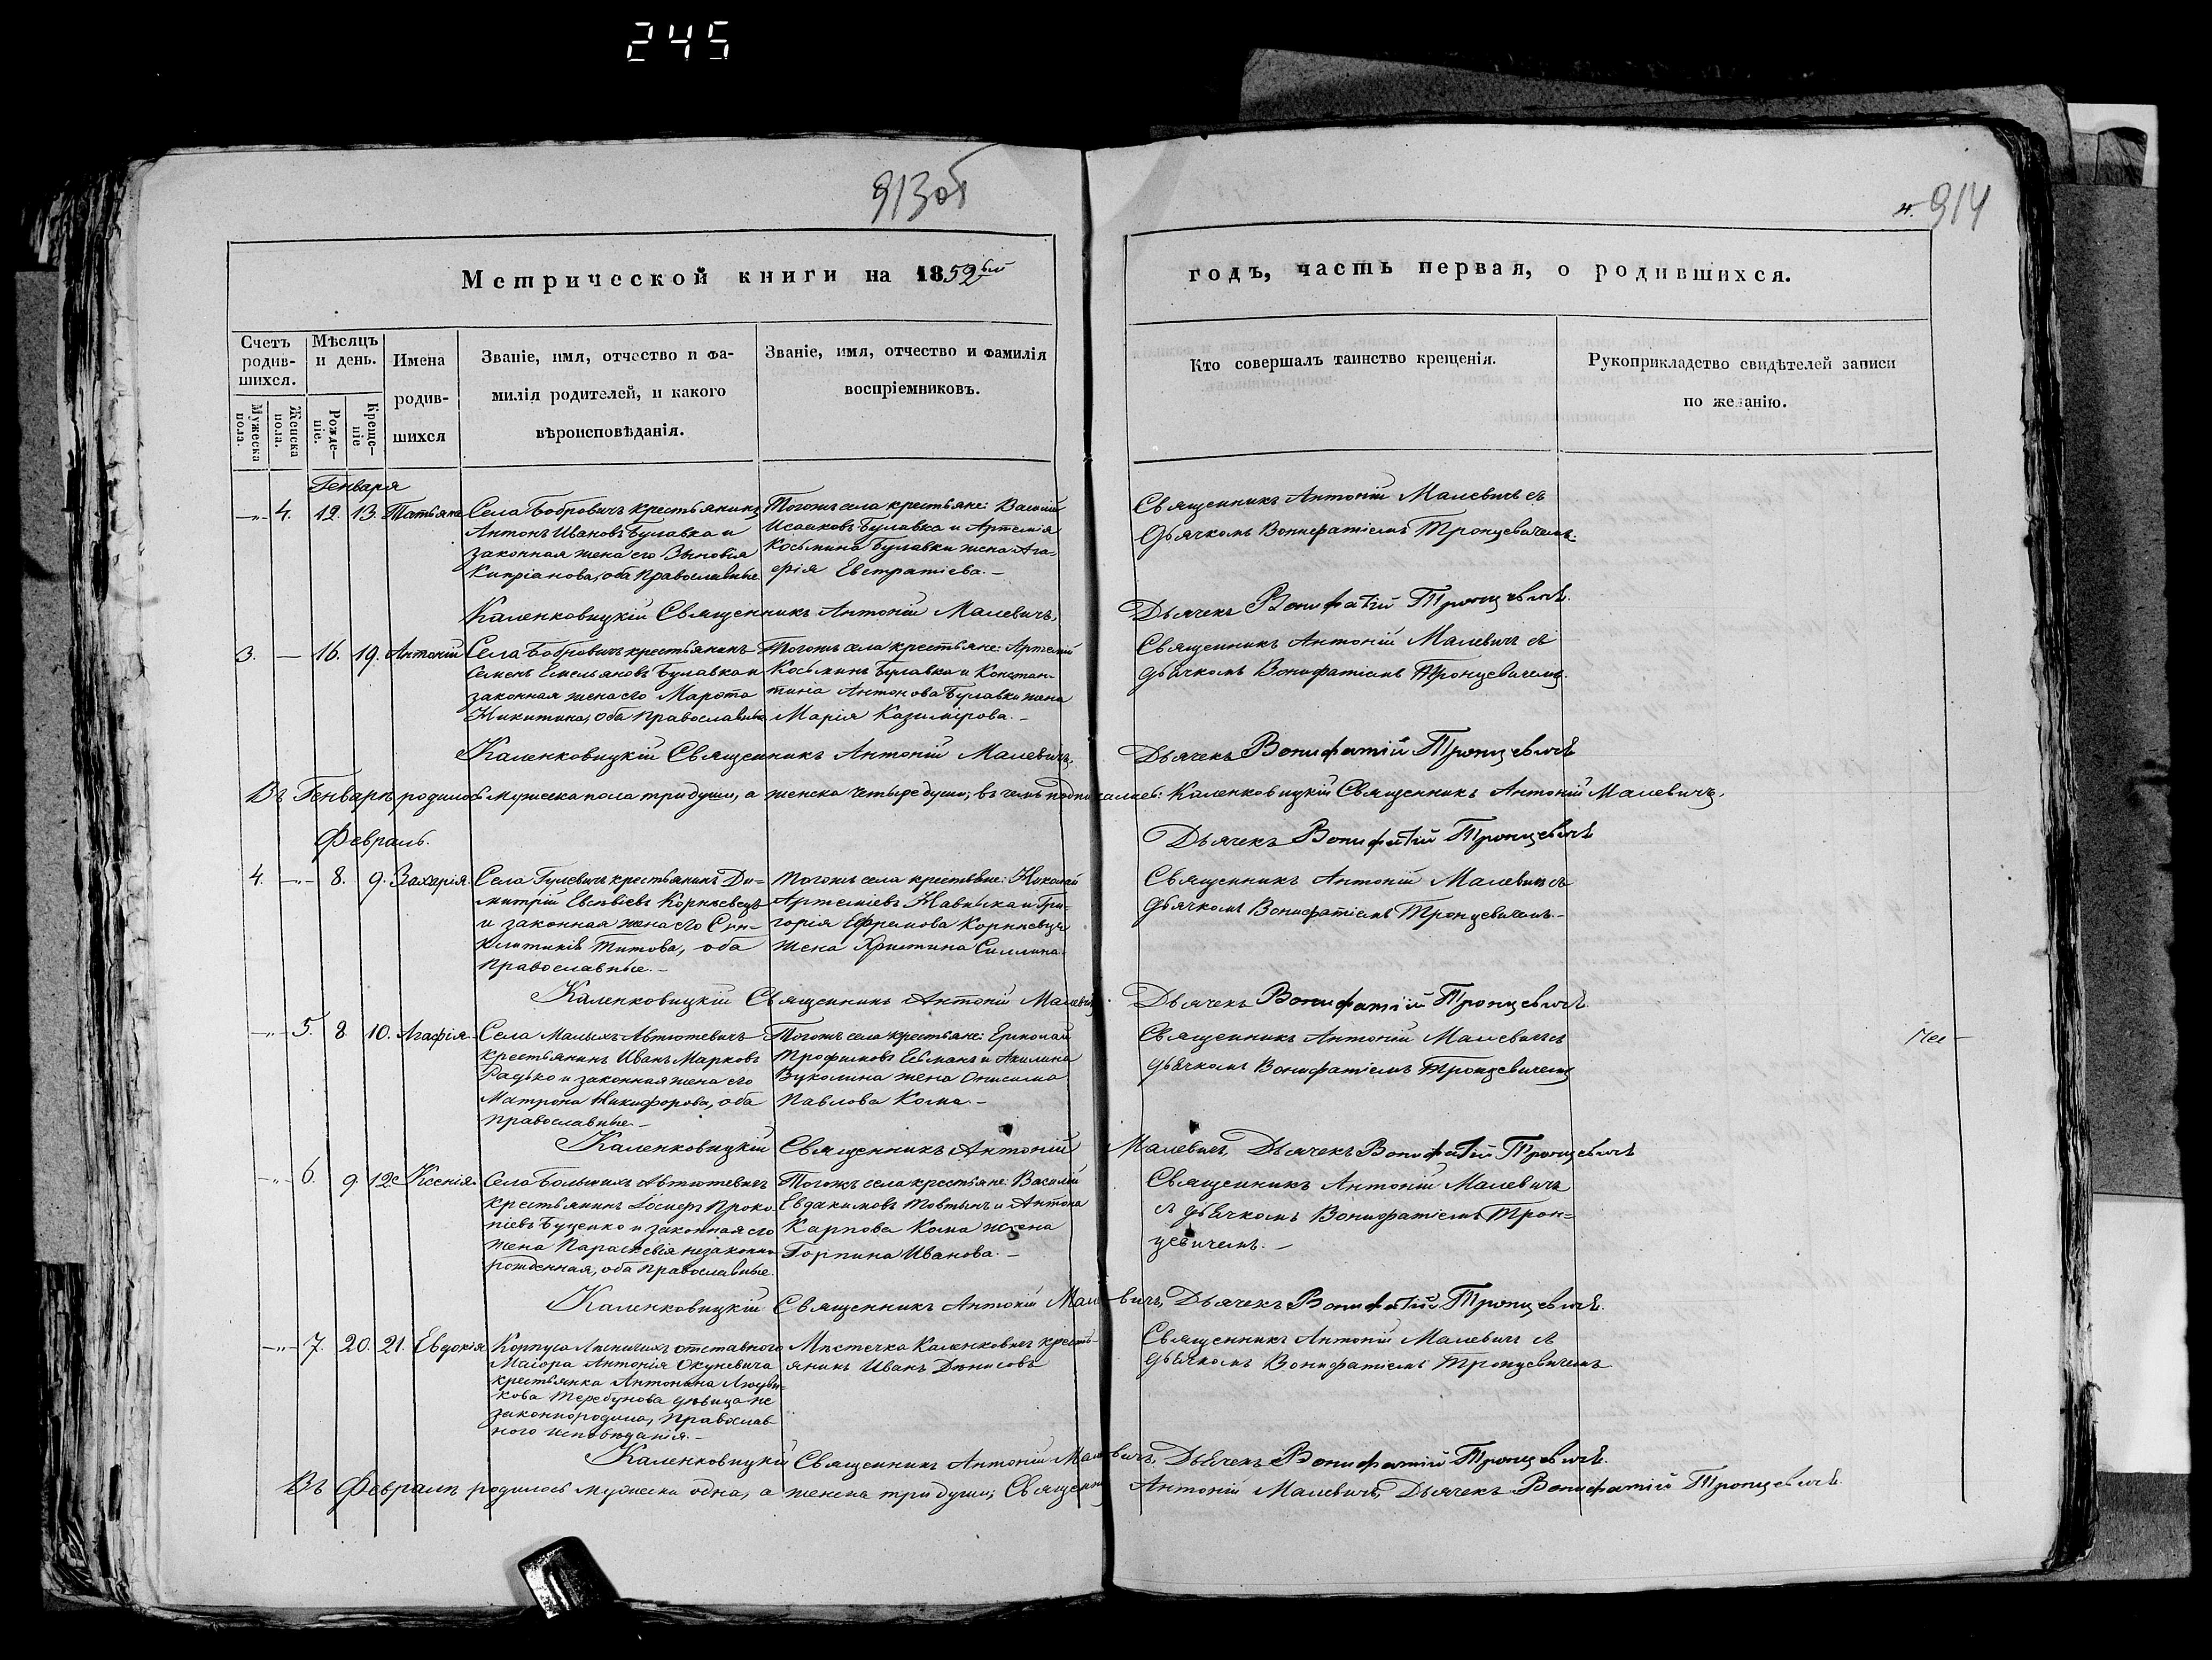 245
913об
4. 914
Метрической книги на 1859ый
годъ, часть первая, о родившихся.
Счетъ родив-шихся.
Мужеска пола.
Женска пола.
Мѣсяцъ и день.
Рожде-ніе.
Креще-ніе
Имена родив-шихся
Званіе, имя, отчество и фа-
милія родителей, и какого
вѣроисповѣданія.
Званіе, имя, отчество и фамилія
воспріемниковъ.
Кто совершалъ таинство крещенія.
Рукоприкладство свидѣтелей записи
по желанію.
Генваря
-„- 4. 12. 13. Татьяна
Села Бобровичъ крестьянинъ
Антонъ Ивановъ Булавка и
законная жена его Зыновія
Кипріанова, оба Православные
Тогожъ села крестьяне: Василій
Исааковъ Булавка и Артемія
Косьмина Булавки жена Ага-
фія Евстратіева.-
Священникъ Антоній Малевичъ съ
дьячкомъ Вонифатіемъ Тронцевичемъ.
Каленковицкій Священникъ Антоній Малевичъ,
Дьячекъ Вонифатій Тронцевичъ.
3. — 16. 19. Антоній
Села Бобровичъ крестьянинъ
Семенъ Емельяновъ Булавка и
законная жена его Марѳта
Никитина, оба Православные
Тогожъ села крестьяне: Артемій
Косьминъ Булавка и Констан-
тина Антонова Булавки жена
Марія Казимірова.-
Священникъ Антоній Малевичъ съ
дьячкомъ Вонифатіемъ Тронцевичемъ.
Каленковицкій Священникъ Антоній Малевичъ,
Дьячекъ Вонифатій Тронцевичъ
Въ Генварѣ родилось мужеска пола три души, а женска четыре души; въ чемъ подписались: Каленковицкій Священникъ Антоній Малевичъ,
Февраль.
Дьячекъ Вонифатій Тронцевичъ
4. -„- 8. 9. Захарія.
Села Гулевичъ крестьянинъ Ди-
митрій Евсѣвіевъ Корнѣевецъ
и законная жена его Син-
клитикія Титова, оба
Православные.-
Тогожъ села крестьяне: Николай
Артеміевъ
горія Ефремова Корнѣевца
жена Христина
Священникъ Антоній Малевичъ съ
дьячкомъ Вонифатіемъ Тронцевичемъ.-
Каленковицкій Священникъ Антоній Малевичъ.
Дьячекъ Вонифатій Тронцевичъ.
-„- 5. 8 10. Агафія.
Села Малыхъ Автютевичъ
крестьянинъ Иванъ Марковъ
Радько и законная жена его
Матрона Никифорова, оба
православные.-
Тогожъ села крестьяне: Ермолай
Трофимовъ и Акилина
Вуколина жена Онисима
Павлова Кома.-
Священникъ Антоній Малевичъ съ
дьячкомъ Вонифатіемъ Тронцевичемъ
Каленковицкій Священникъ Антоній Малевичъ, Дьячекъ Вонифатій Тронцевичъ
-„- 6. 9. 12. Ксенія.
Села Большихъ Автютевичъ
крестьянинъ Іосифъ Проко-
піевъ Буценко и законная его
жена Параскевія незаконно-
рожденная, оба православные.
Тогожъ села крестьяне: Василій
Евдакимовъ Товтынъ и Антона
Карпова Кома жена
Горпина Иванова.-
Священникъ Антоній Малевичъ
съ дьячкомъ Вонифатіемъ Трон=
цевичемъ.-
Каленковицкій Священникъ Антоній Малевичъ, Дьячекъ Вонифатій Тронцевичъ.
-„- 7. 20. 21. Евдокія
Корпуса Лѣсничихъ отставного
Маіора Антонія Окуневича
крестьянка Антонина
Теребунова дѣвица не
законнородила, Православ-
ного исповѣданія.-
Мѣстечка Каленковичъ кресть-
янинъ Иванъ Денисовъ
Священникъ Антоній Малевичъ съ
дьячкомъ Вонифатіемъ Тронцевичемъ
Каленковицкій Священникъ Антоній Малевичъ, Дьячекъ Вонифатій Тронцевичъ.
Въ Февралѣ родилось мужеска одна, а женска три души; Священникъ Антоній Малевичъ, Дьячекъ Вонифатій Тронцевичъ.